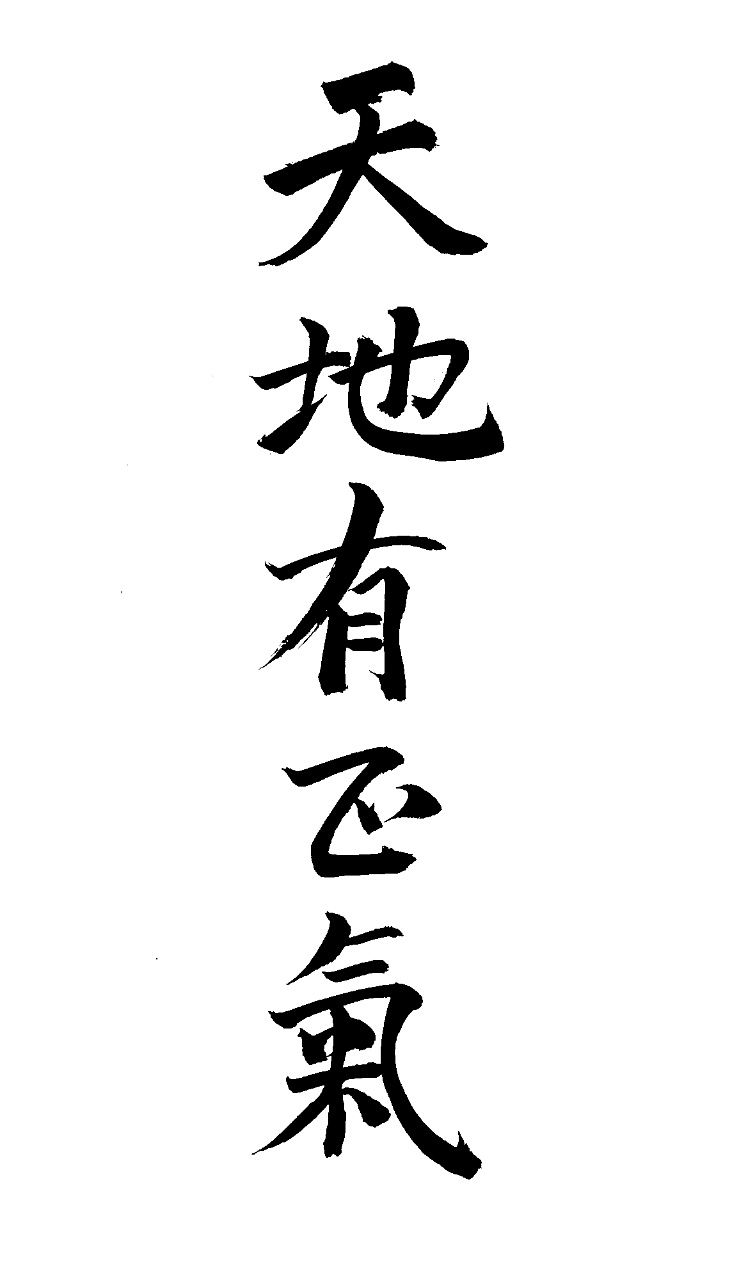 天地有正氣